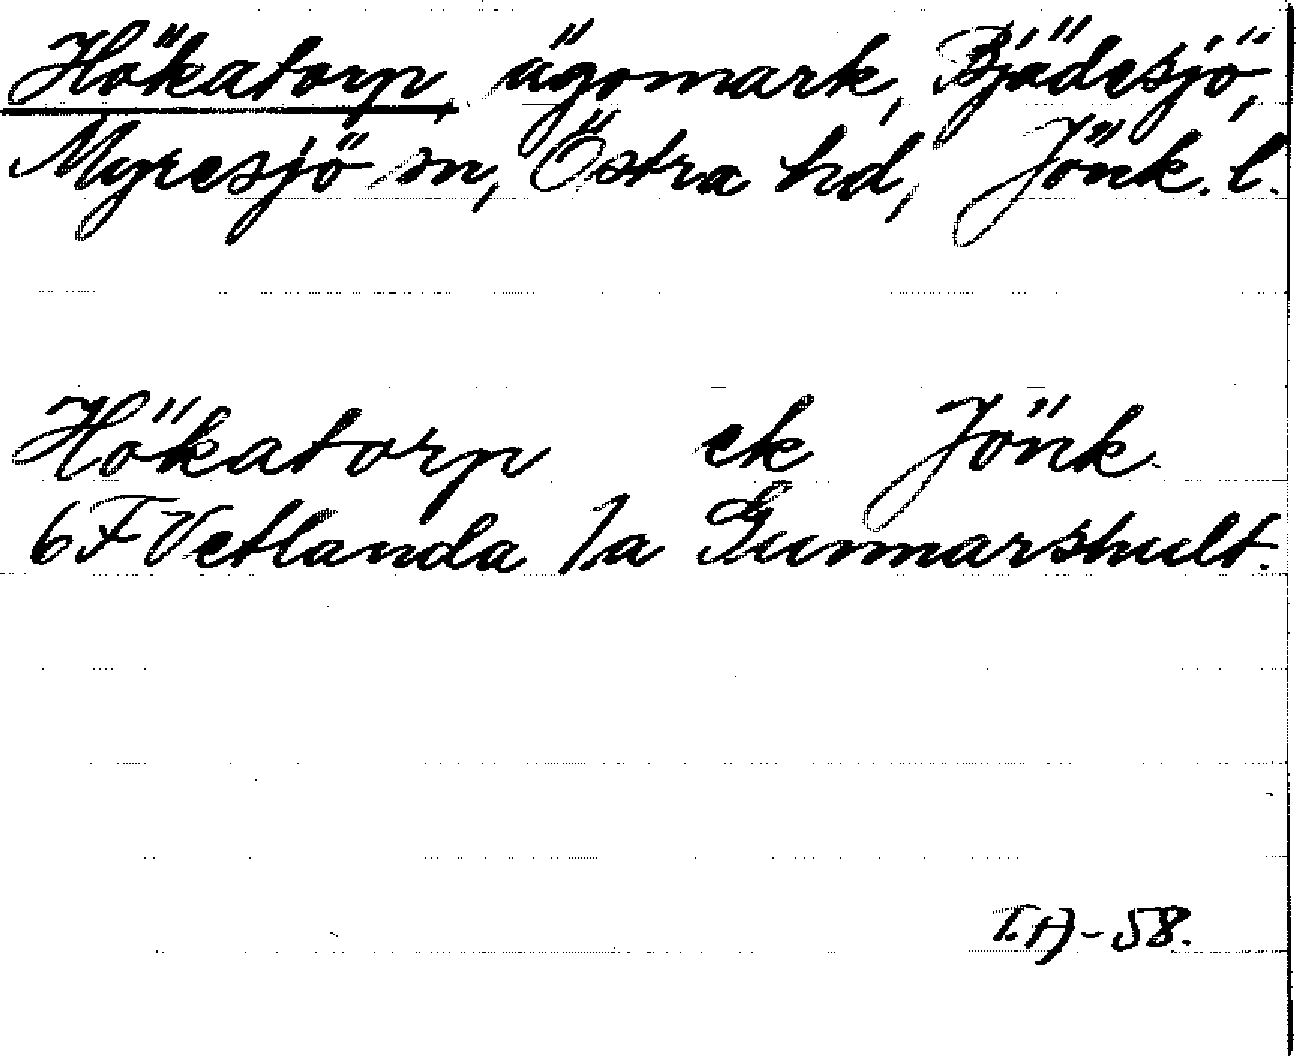 Hökatorp, ägomark, Bjädesjö,
Myresjö sn, Östra hd, Jönk. l.
Hökatorp ek Jönk
6F Vetlanda 1a Gunnarshult.
T.A-58.